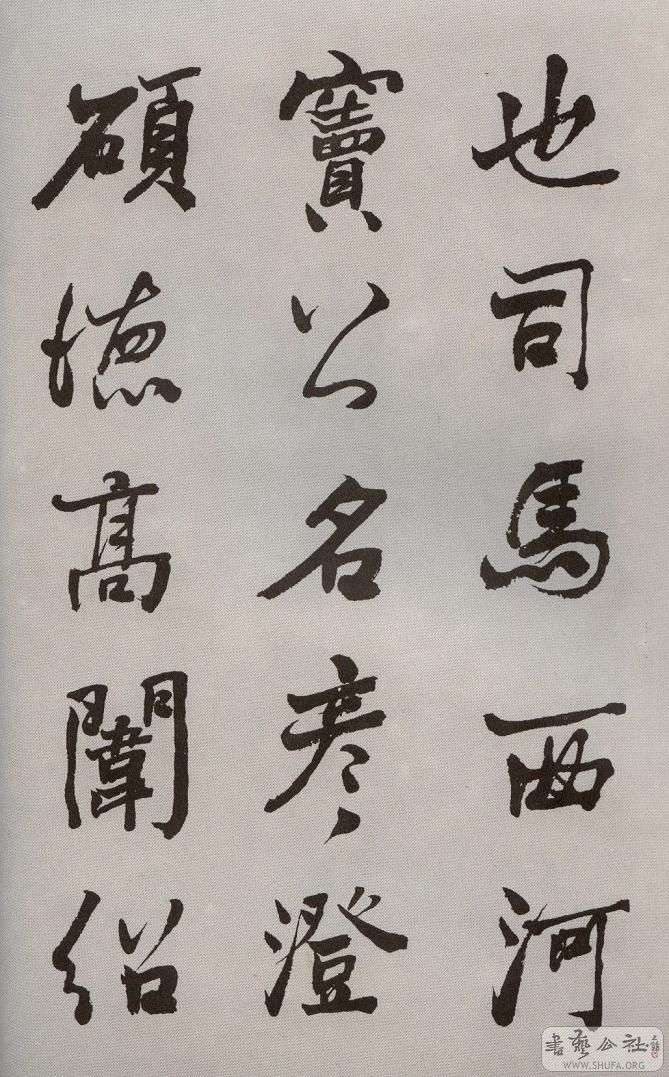 也司馬西河
竇公名彦澄
碩德高闈紹
書藝公社
WWW.SHUFA.ORG